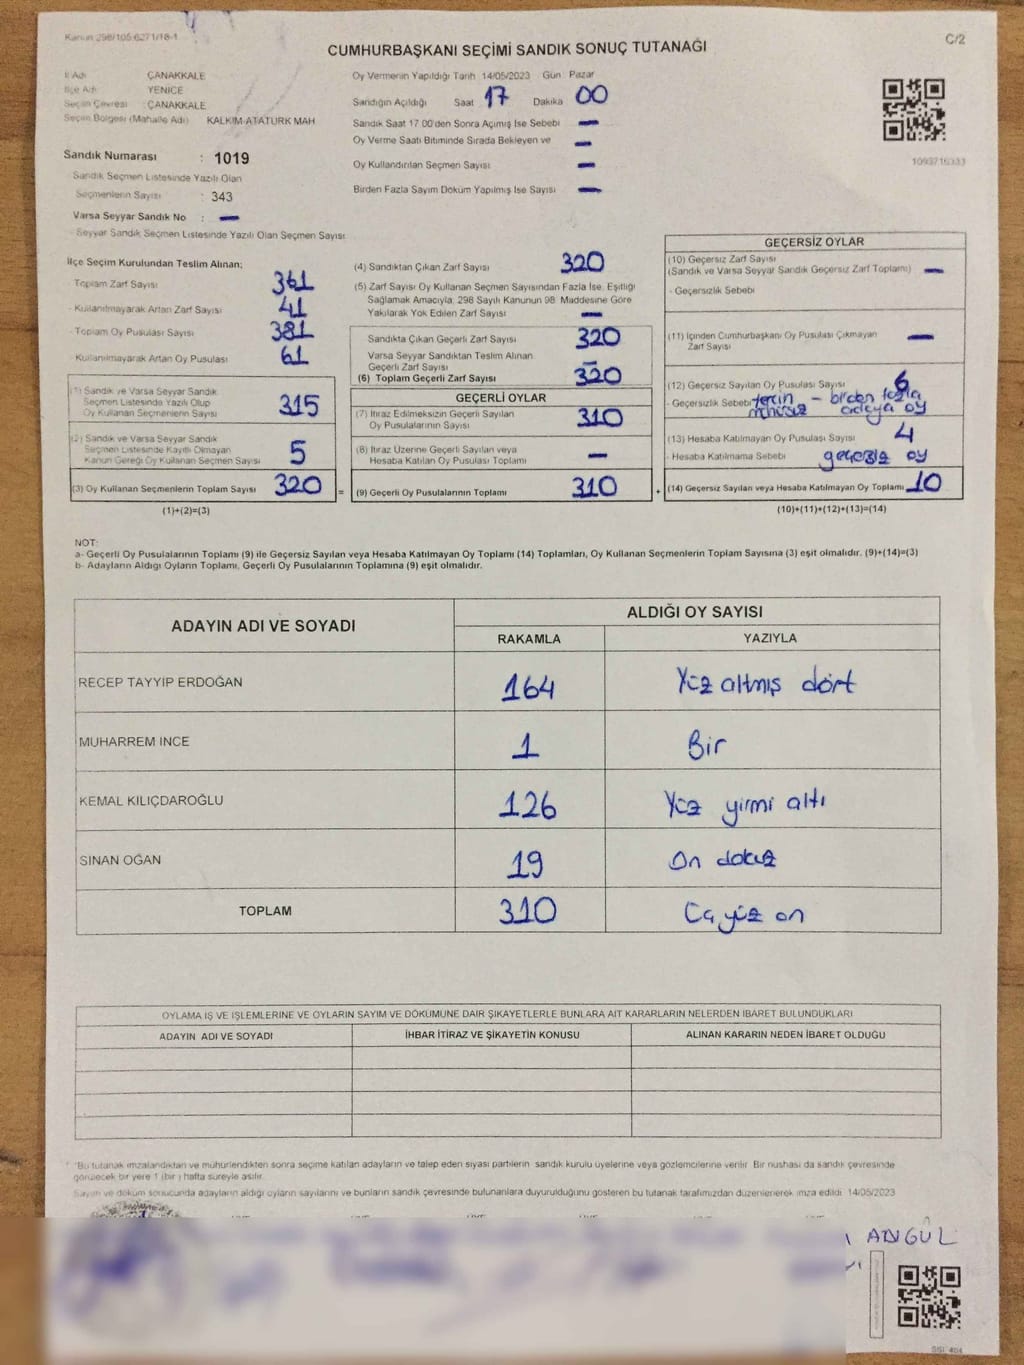 Kanun 298/105 6271/18-1
C/2
CUMHURBAŞKANI SEÇİMİ SANDIK SONUÇ TUTANAĞI
İl Adı : ÇANAKKALE
İlçe Adı : YENİCE
Seçim Çevresi : ÇANAKKALE
Seçim Bölgesi (Mahalle Adı) KALKIM ATATÜRK MAH
Sandık Numarası : 1019
Sandık Seçmen Listesinde Yazılı Olan
Seçmenlerin Sayısı : 343
Varsa Seyyar Sandık No : —
- Seyyar Sandık Seçmen Listesinde Yazılı Olan Seçmen Sayısı
Oy Vermenin Yapıldığı Tarih 14/05/2023 Gün Pazar
Sandığın Açıldığı Saat 17 Dakika 00
Sandık Saat 17.00'den Sonra Açımış İse Sebebi —
Oy Verme Saati Bitiminde Sırada Bekleyen ve —
Oy Kullandırılan Seçmen Sayısı —
Birden Fazla Sayım Döküm Yapılmış İse Sayısı —
1093716333
İlçe Seçim Kurulundan Teslim Alınan;
Toplam Zarf Sayısı 361
- Kullanılmayarak Artan Zarf Sayısı 41
- Toplam Oy Pusulası Sayısı 381
- Kullanılmayarak Artan Oy Pusulası 61
(1) Sandık ve Varsa Seyyar Sandık
Seçmen Listesinde Yazılı Olup
Oy Kullanan Seçmenlerin Sayısı 315
(2) Sandık ve Varsa Seyyar Sandık
Seçmen Listesinde Kayıtlı Olmayan
Kanun Gereği Oy Kullanan Seçmen Sayısı 5
(3) Oy Kullanan Seçmenlerin Toplam Sayısı 320 =
(1)+(2)=(3)
(4) Sandıktan Çıkan Zarf Sayısı 320
(5) Zarf Sayısı Oy Kullanan Seçmen Sayısından Fazla İse, Eşitliği
Sağlamak Amacıyla, 298 Sayılı Kanunun 98. Maddesine Göre
Yakılarak Yok Edilen Zarf Sayısı —
Sandıkta Çıkan Geçerli Zarf Sayısı 320
Varsa Seyyar Sandıktan Teslim Alınan
Geçerli Zarf Sayısı —
(6) Toplam Geçerli Zarf Sayısı 320
GEÇERLİ OYLAR
(7) İtiraz Edilmeksizin Geçerli Sayılan
Oy Pusulalarının Sayısı 310
(8) İtiraz Üzerine Geçerli Sayılan veya
Hesaba Katılan Oy Pusulası Toplamı —
(9) Geçerli Oy Pusulalarının Toplamı 310 +
GEÇERSİZ OYLAR
(10) Geçersiz Zarf Sayısı
(Sandık ve Varsa Seyyar Sandık Geçersiz Zarf Toplamı) —
- Geçersizlik Sebebi
(11) İçinden Cumhurbaşkanı Oy Pusulası Çıkmayan
Zarf Sayısı —
(12) Geçersiz Sayılan Oy Pusulası Sayısı 6
- Geçersizlik Sebebi - birden fazla
adaya oy
(13) Hesaba Katılmayan Oy Pusulası Sayısı 4
- Hesaba Katılmama Sebebi geçersiz oy
(14) Geçersiz Sayılan veya Hesaba Katılmayan Oy Toplamı 10
(10)+(11)+(12)+(13)=(14)
NOT:
a- Geçerli Oy Pusulalarının Toplamı (9) ile Geçersiz Sayılan veya Hesaba Katılmayan Oy Toplamı (14) Toplamları, Oy Kullanan Seçmenlerin Toplam Sayısına (3) eşit olmalıdır. (9)+(14)=(3)
b- Adayların Aldığı Oyların Toplamı, Geçerli Oy Pusulalarının Toplamına (9) eşit olmalıdır.
ADAYIN ADI VE SOYADI
ALDIĞI OY SAYISI
RAKAMLA YAZIYLA
RECEP TAYYİP ERDOĞAN 164 Yüz altmış dört
MUHARREM İNCE 1 Bir
KEMAL KILIÇDAROĞLU 126 Yüz yirmi altı
SİNAN OĞAN 19 On dokuz
TOPLAM 310 Üç yüz on
OYLAMA İŞ VE İŞLEMLERİNE VE OYLARIN SAYIM VE DÖKÜMÜNE DAİR ŞİKAYETLERLE BUNLARA AİT KARARLARIN NELERDEN İBARET BULUNDUKLARI
ADAYIN ADI VE SOYADI İHBAR İTİRAZ VE ŞİKAYETİN KONUSU ALINAN KARARIN NEDEN İBARET OLDUĞU
* "Bu tutanak imzalandıktan ve mühürlendikten sonra seçime katılan adayların ve talep eden siyasi partilerin sandık kurulu üyelerine veya gözlemcilerine verilir. Bir nüshası da sandık çevresinde
görülecek bir yere 1 (bir) hafta süreyle asılır.
Sayım ve döküm sonucunda adayların aldığı oyların sayılarını ve bunların sandık çevresinde bulunanlara duyurulduğunu gösteren bu tutanak tarafımızdan düzenlenerek imza edildi. 14/05/2023
ADIGÜL